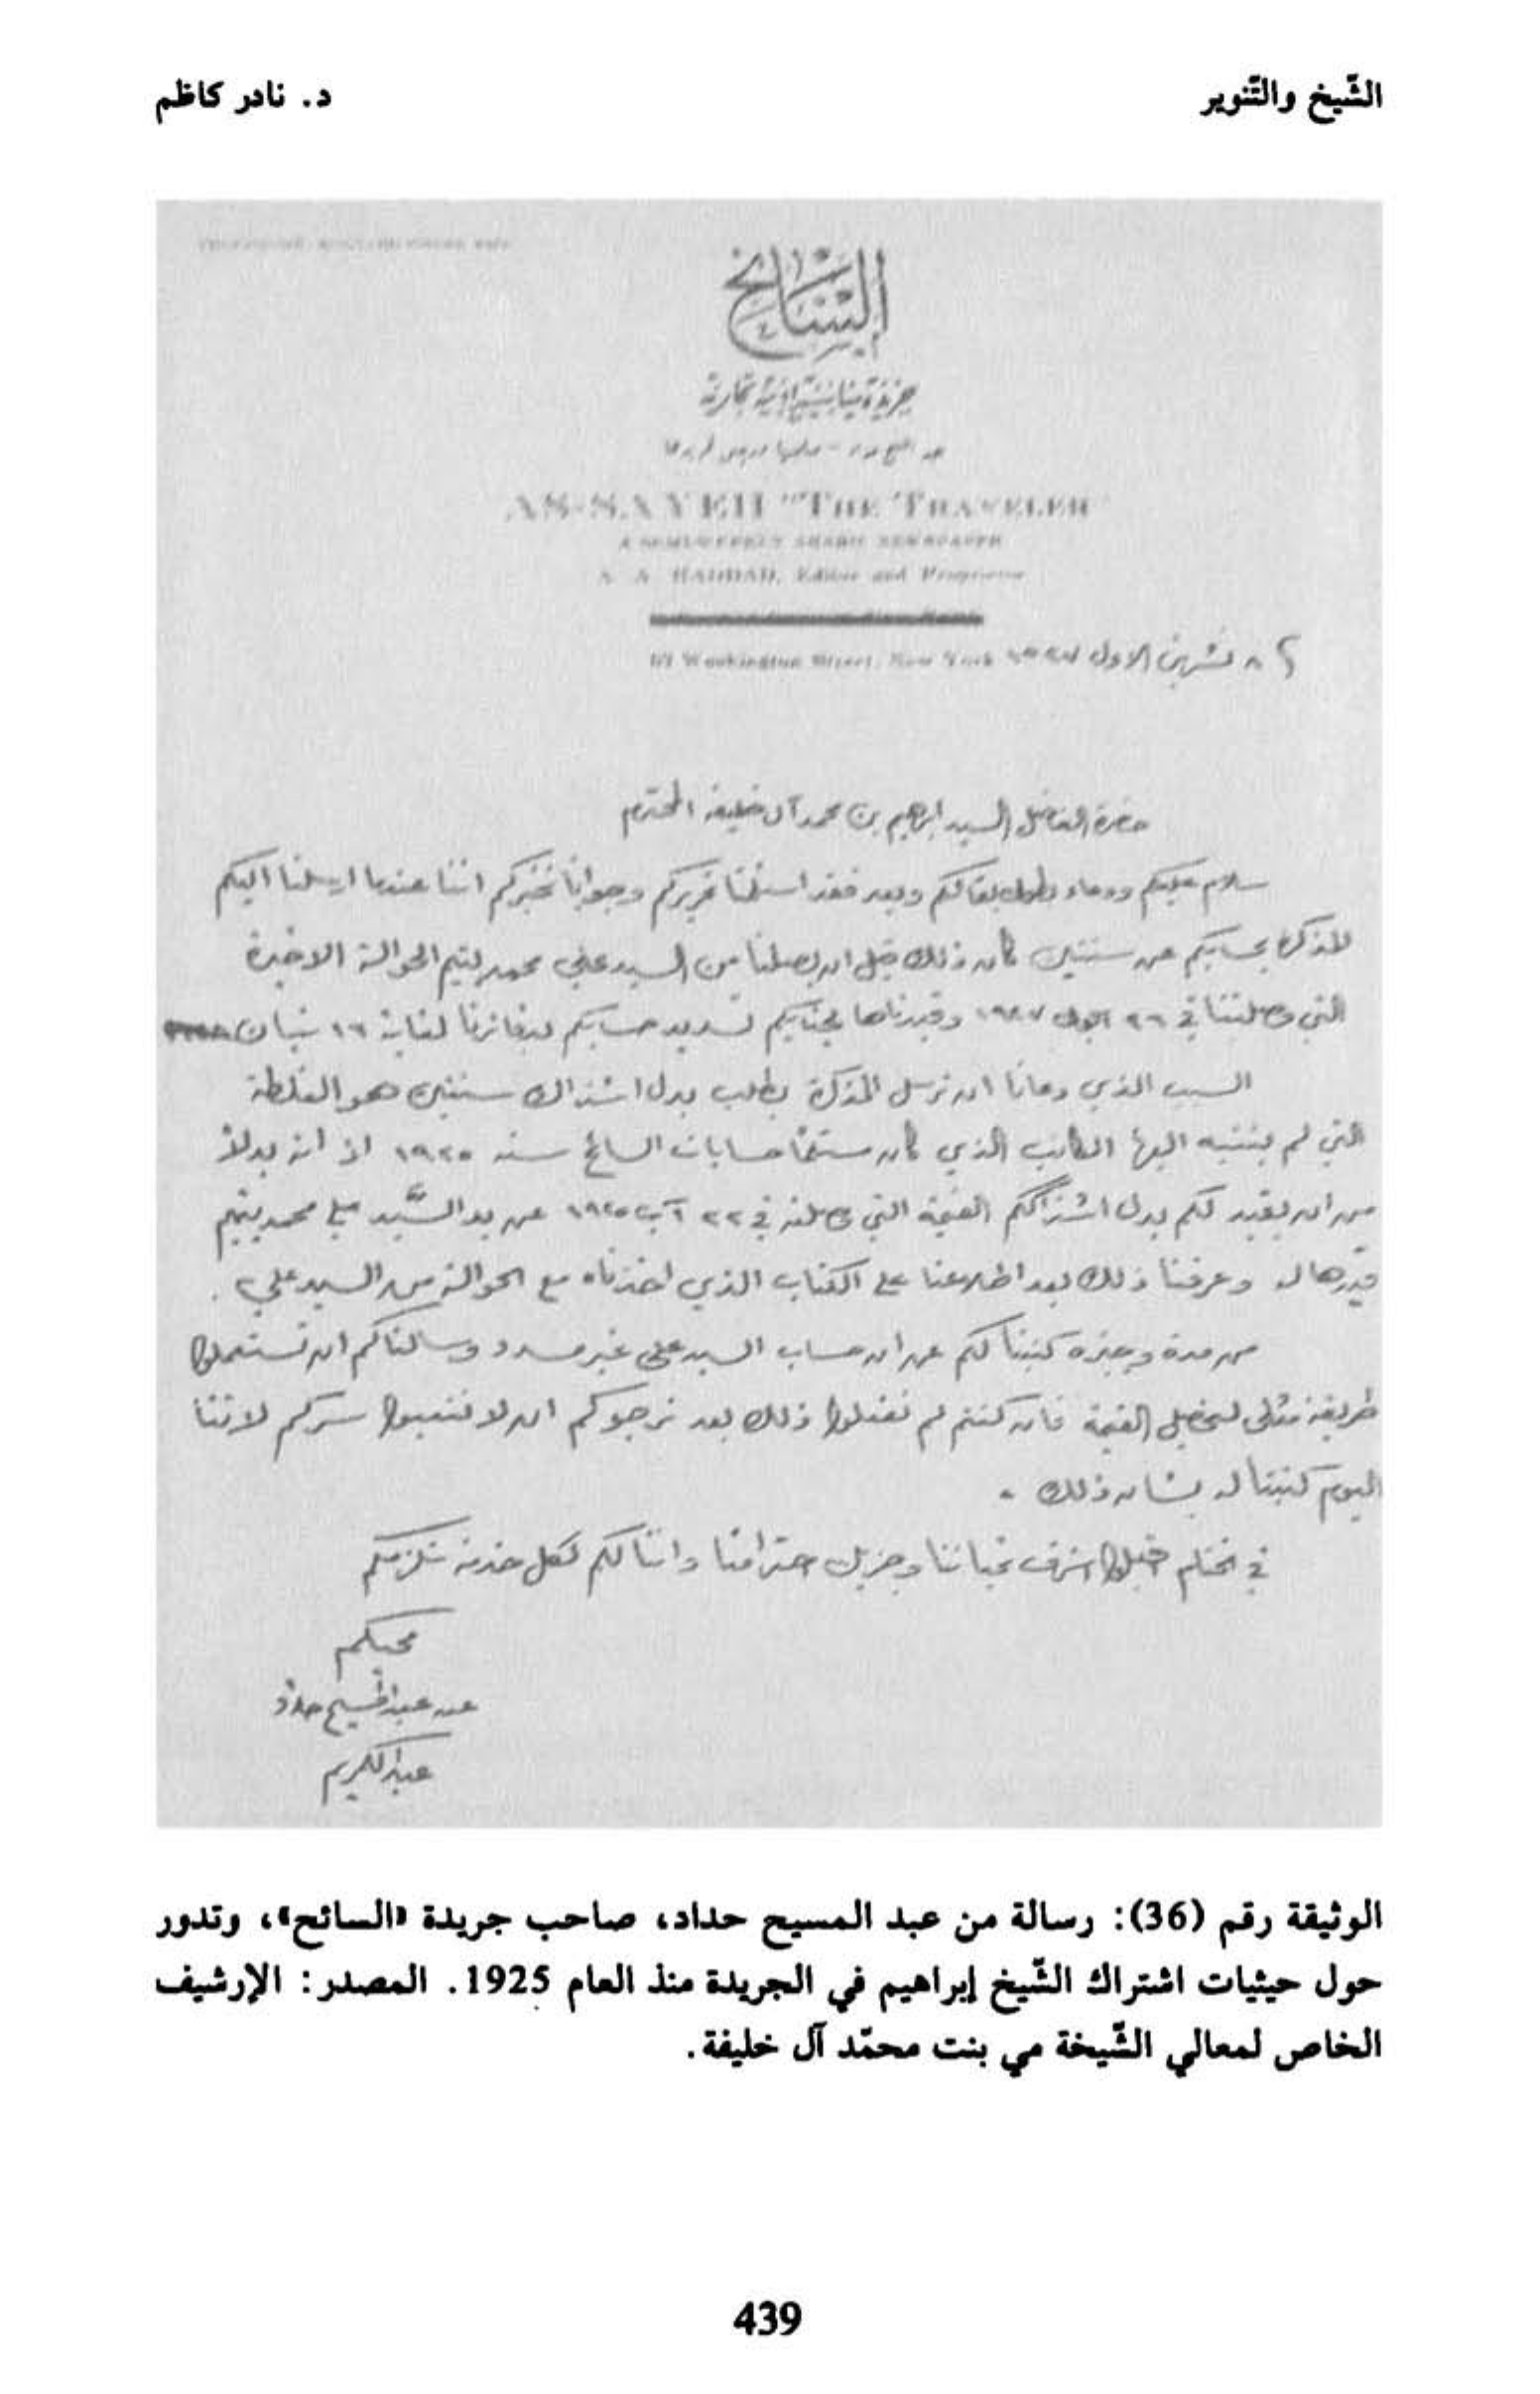 الشّيخ والتّنوير
د. نادر كاظم
السائح
جريدة سياسية ادبية تجارية
AS-SAYEH "THE TRAVELER"
A SEMI-WEEKLY ARABIC NEWSPAPER
A. A. HADDAD, Editor and Proprietor
Washington Street, New York
تشرين الاول
حضرة الفاضل السيد ابراهيم بن محمد آل خليفه المحترم
سلام عليكم ودعاء بطول بقائكم وبعد فقد استلمنا تحريركم وجواباً نخبركم اننا عندما ارسلنا اليكم
المذكرة بحسابكم عن سنتين كان ذلك قبل ان يصلنا من السيد علي محمد يتيم الحوالة الاخيرة
التي وصلتنا في ٢٦ ١٩٢٧ وقيدناها لجنابكم تسديد حسابكم بدفاترنا لغاية ١٦ نيسان
السبب الذي دعانا ان نرسل المذكرة بطلب بدل اشتراك سنتين هو الغلطة
التي لم ينتبه اليها الكاتب الذي كان مستلماً حسابات السائح سنه ١٩٢٥ اذ انه بدلاً
من ان يقيد لكم بدل اشتراككم القيمة التي وصلته في ٢٢ آب ١٩٢٥ عن يد السَّيد علي محمد يتيم
قيدها له وعرفنا ذلك بعد اطلاعنا على الكتاب الذي اخذناه مع الحوالة من السيد علي .
من مدة وجيزه كتبنا لكم عن ان حساب السيد علي غير مسدد وسالناكم ان تستعملوا
طريقة مثلى لتحصيل القيمة فان كنتم لم تفعلوا ذلك بعد نرجوكم ان لا تتعبوا سركم لاننا
اليوم كتبنا له بشان ذلك .
في الختام اقبلوا اشرف تحياتنا وجزيل احترامنا واننا لكم لكل خدمة تلزمكم
محبكم
عن عبد المسيح حداد
عبد الكريم
الوثيقة رقم (36): رسالة من عبد المسيح حداد، صاحب جريدة «السائح»، وتدور
حول حيثيات اشتراك الشّيخ إبراهيم في الجريدة منذ العام 1925. المصدر: الإرشيف
الخاص لمعالي الشّيخة مي بنت محمّد آل خليفة.
439